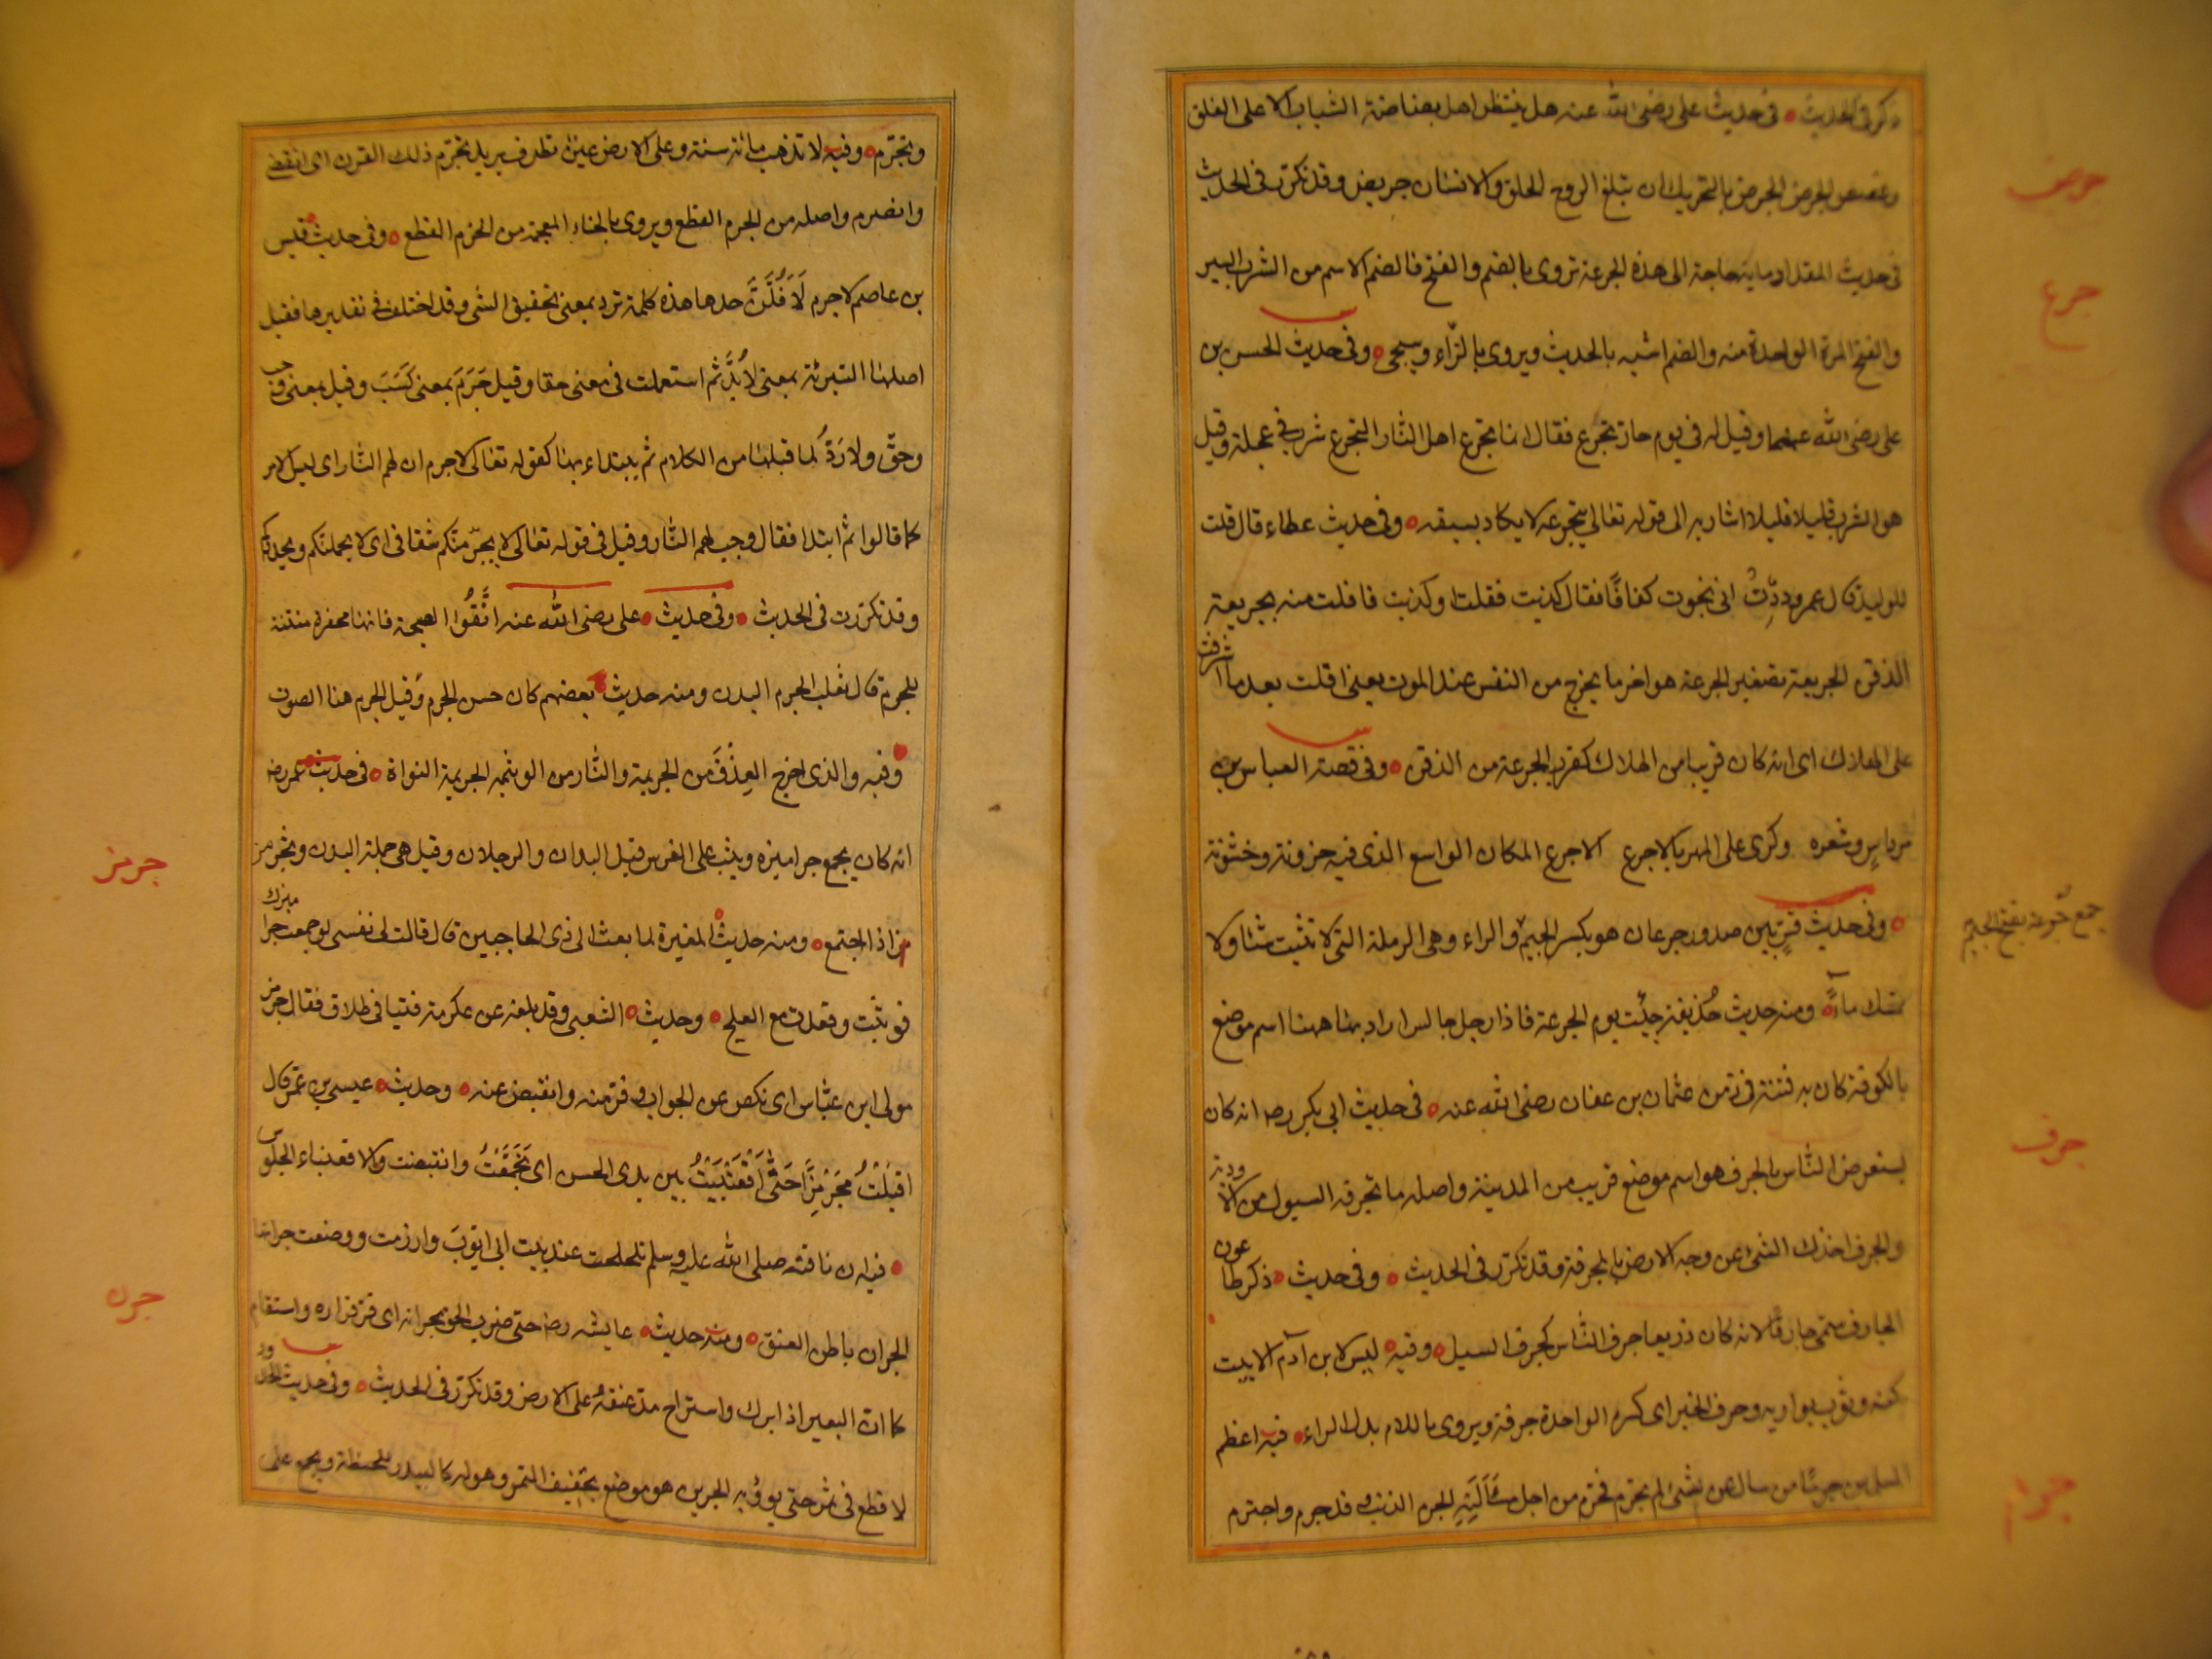 ذكر فى الحديث فى حديث على رضى الله عنه هل ينتظر اهل بضاضة الشباب الا على القلق
وغصص الجرض الجرض بالتحريك ان تبلغ الروح الحلق والانسان جريض وقد تكرر فى الحديث
جرض
فى حديث المقداد ما به حاجة الى هذه الجرعة تروى بالضم والفتح فالضم الاسم من الشرب اليسير
جرع
والفتح المرة الواحدة منه والضم اشبه بالحديث ويروى بالزاء وسيجئ وفى حديث الحسن بن
على رضى الله عنهما وقيل له فى يوم حار تجرع فقال انما يتجرع اهل النار التجرع شرب فى عجلة وقيل
هو الشرب قليلا قليلا اشار به الى قوله تعالى يتجرعه ولا يكاد يسيغه وفى حديث عطاء قال قلت
للوليد قال عمر وددت انى نجوت كفافا فقال كذبت فقلت او كذبت فافلت منه بجريعة
الذقن الجريعة تصغير الجرعة هو اخر ما يخرج من النفس عند الموت يعنى افلت بعد ما اشرفت
على الهلاك اى انه كان قريبا من الهلاك كقرب الجرعة من الذقن وفى قصة العباس بن
مرداس وشعره وكرى على المهر بالاجرع الاجرع المكان الواسع الذى فيه حزونة وخشونة
وفى حديث قس بين صدور جرعان هو بكسر الجيم والراء وهى الرملة التى لا تنبت شئا ولا
جمع جرعة بفتح الجيم
تمسك ماء ومنه حديث حذيفة جئت يوم الجرعة فاذا رجل جالس اراد بها ههنا اسم موضع
بالكوفة كان به فتنة فى زمن عثمان بن عفان رضى الله عنه فى حديث ابى بكر رضه انه كان
يستعرض الناس بالجرف هو اسم موضع قريب من المدينة واصله ما تجرفه السيول من الاودية
جرف
والجرف اخذك الشئ عن وجه الارض بالمجرفة وقد تكرر فى الحديث وفى حديث ذكر طاعون
الجارف سمى جارفا لانه كان ذريعا جرف الناس كجرف السيل وفيه ليس لابن آدم الا بيت
يكنه وثوب يواريه وجرف الخبز اى كسره الواحدة جرفة ويروى باللام بدل الراء فيه اعظم
المسلمين جرما من سال عن شئ لم يجرم فحرم من اجل مسألته الجرم الذنب وقد جرم واجترم
جرم
وتجرم وفيه لا تذهب مائة سنة وعلى الارض عين تطرف يريد تجرم ذلك القرن اى انقضى
وانصرم واصله من الجرم القطع ويروى بالخاء المعجمة من الخزم القطع وفى حديث قيس
بن عاصم لا جرم لافلن حدها هذه كلمة ترد بمعنى تحقيق الشئ وقد اختلف فى تقديرها فقيل
اصلها التبرئة بمعنى لا بد ثم استعملت فى معنى حقا وقيل جرم بمعنى كسب وقيل بمعنى وجب
وحق ولا رد لما قبلها من الكلام ثم يبتداء بها كقوله تعالى لا جرم ان لهم النار اى ليس الامر
كما قالوا ثم ابتدا فقال وجب لهم النار وقيل فى قوله تعالى لا يجرمنكم شقاقى اى لا يحملنكم ويحدوكم
وقد تكررت فى الحديث وفى حديث على رضى الله عنه اتقوا الصبحة فانها مجفرة منتنة
للجرم قال ثعلب الجرم البدن ومنه حديث بعضهم كان حسن الجرم وقيل الجرم هنا الصوت
وفيه والذى اخرج العذق من الجريمة والنار من الوثيمه الجريمة النواة فى حديث عمر رضه
انه كان يجمع جراميزه ويثب على الفرس قيل اليدان والرجلان وقيل هى جملة البدن وتجرمز
جرمز
اذا اجتمع ومنه حديث المغيرة لما بعث الى ذى الحاجبين قال قالت لى نفسى لو جمعت جراميزك
فوثبت وقعدت مع العلج وحديث الشعبى وقد بلغه عن عكرمة فتيا فى طلاق فقال جرمز
مولى ابن عباس اى نكص عن الجواب وفر منه وانقبض عنه وحديث عيسى بن عمر قال
اقبلت مجرمزا حتى اقعنبيت بين يدى الحسن اى تجمعت وانقبضت والاقعنباء الجلوس
فيه ان ناقته صلى الله عليه وسلم تلحلحت عند بيت ابى ايوب وارزمت ووضعت جرانها
جرن
الجران باطن العنق ومنه حديث عايشه رضه حتى ضرب الحق بجرانه اى قر قراره واستقام
كما ان البعير اذا برك واستراح مد عنقه على الارض وقد تكرر فى الحديث وفى حديث الحدود
لا قطع فى ثمر حتى يؤويه الجرين هو موضع تجفيف التمر وهو له كالبيدر للحنطة ويجمع على